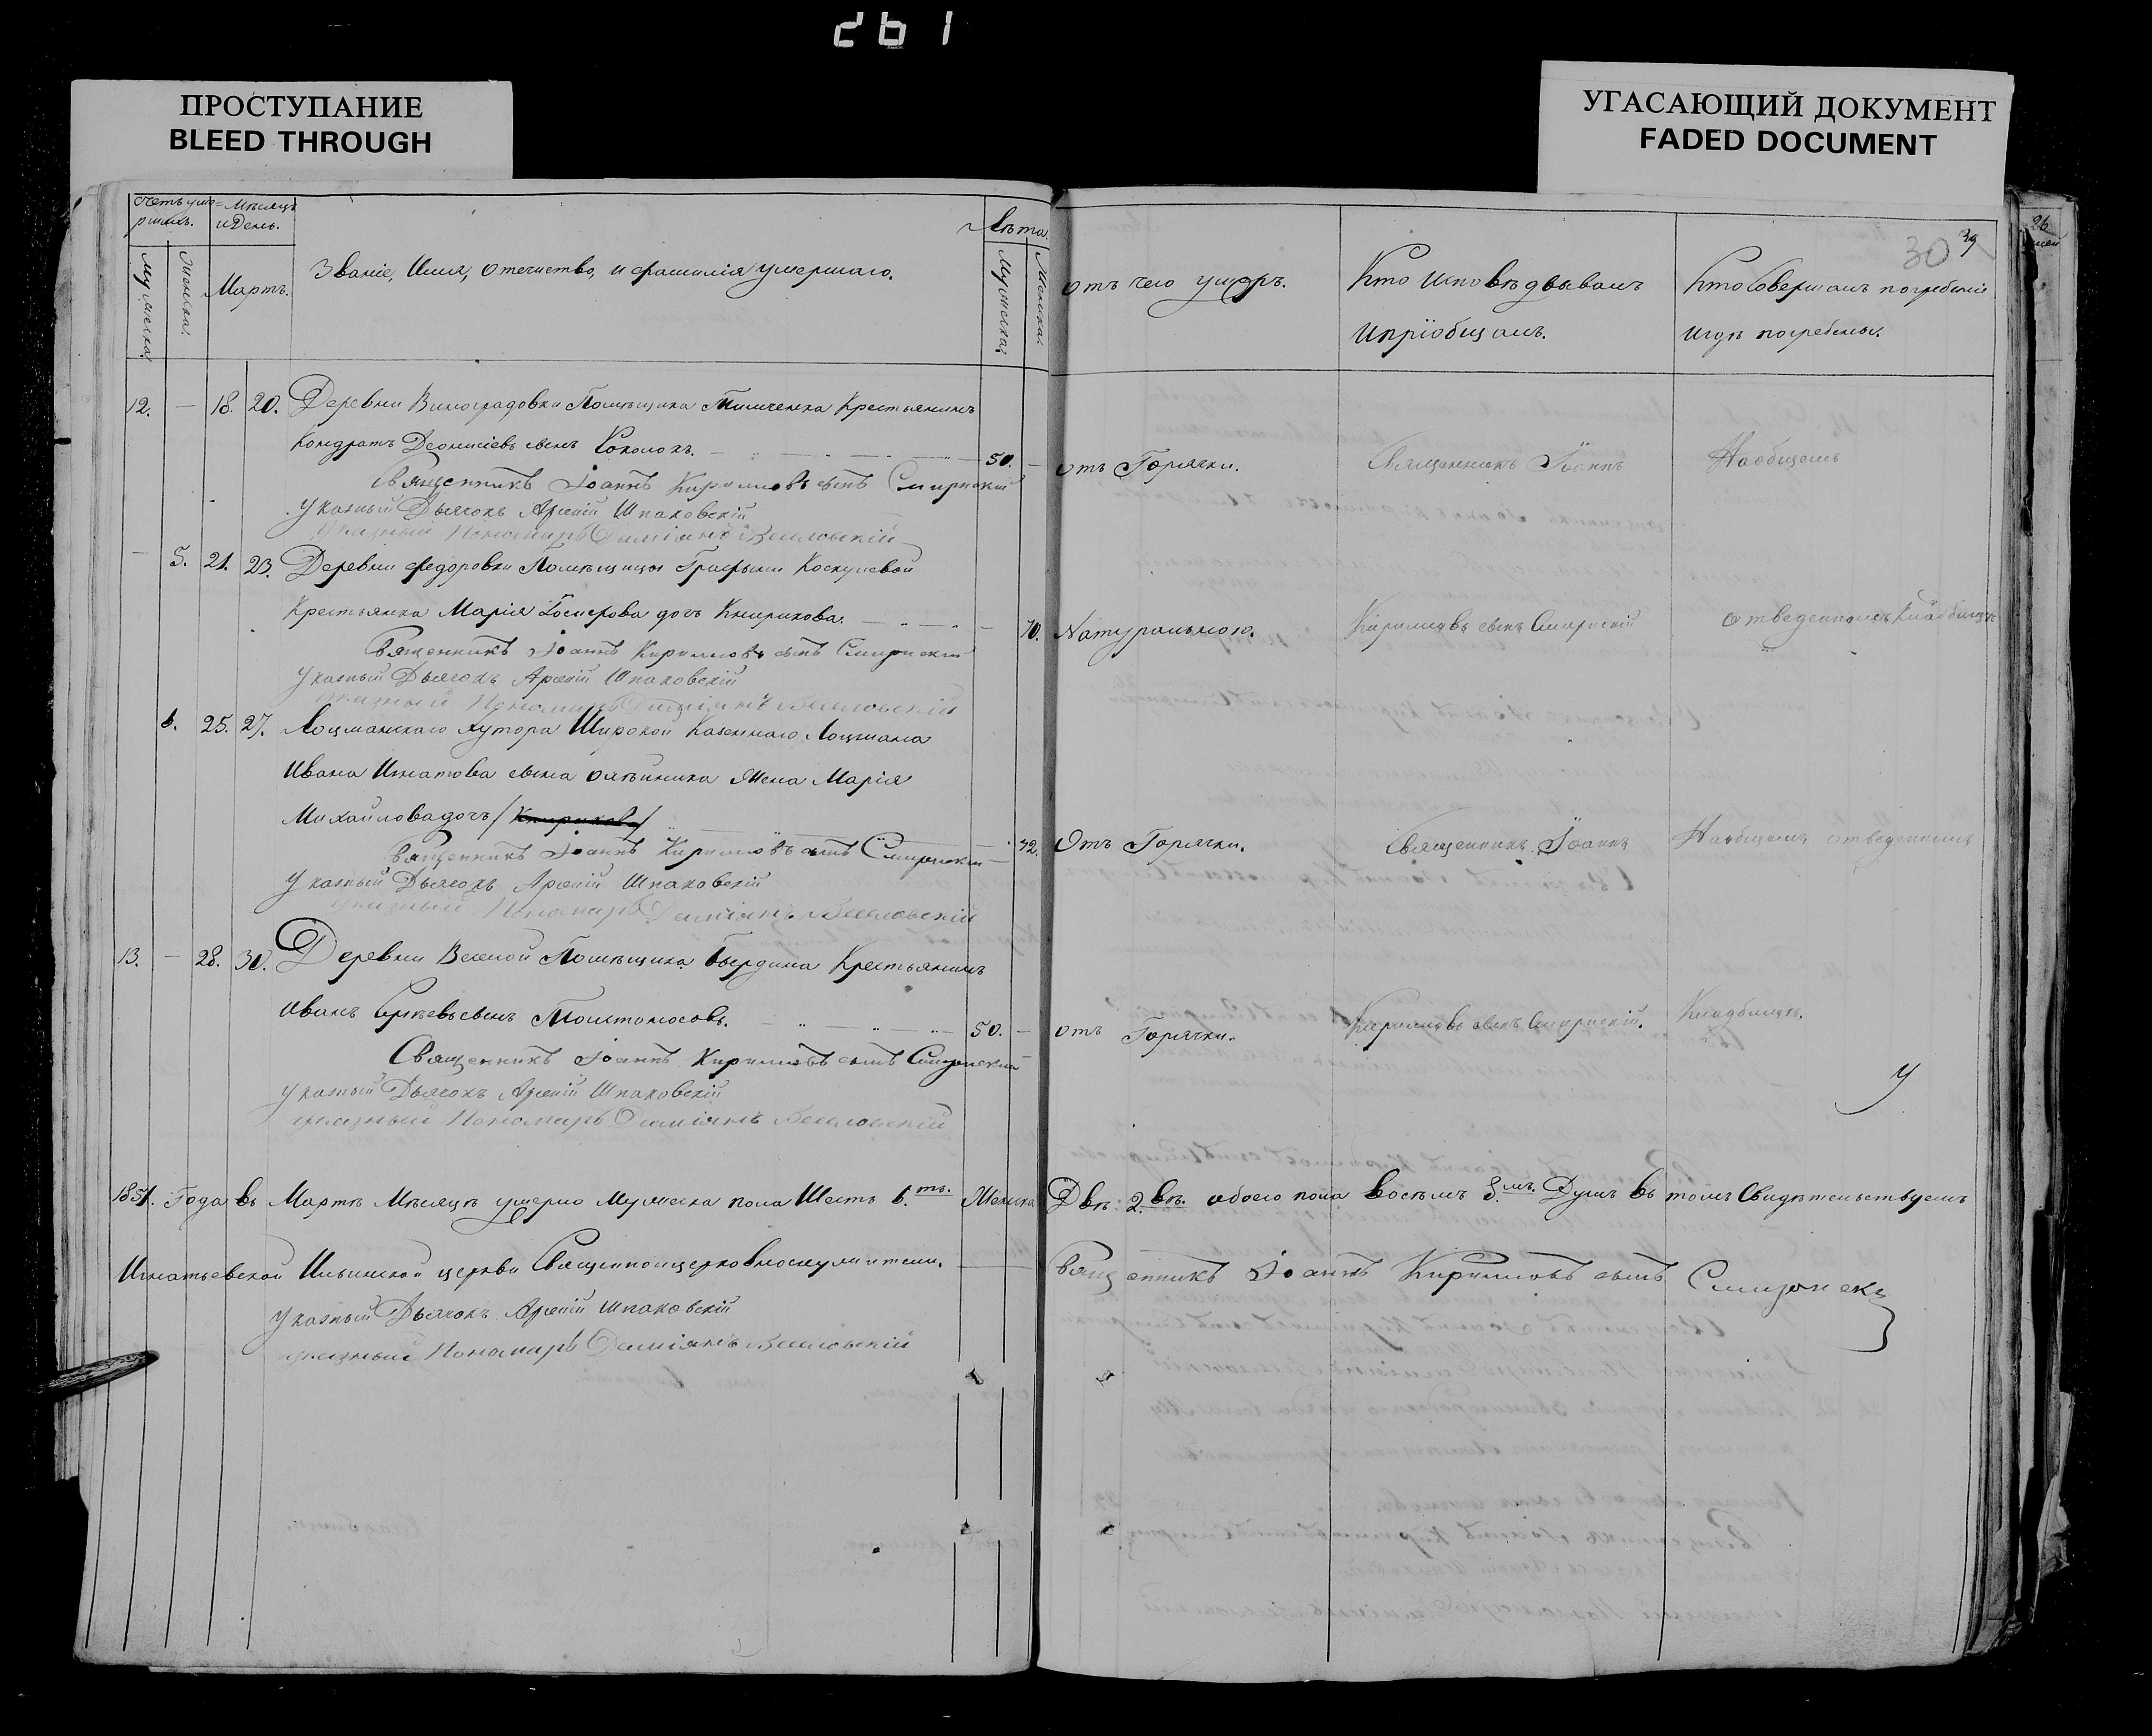 261
ПРОСТУПАНИЕ
BLEED THROUGH
УГАСАЮЩИЙ ДОКУМЕНТ
FADED DOCUMENT
Счетъ уме-
ршихъ.
Мѣсяцъ
и День.
Лѣта.
Мужеска.
Женска.
Мартъ.
Званіе, Имя, Отечество, и фамилія умершаго.
Мужеска.
Женска.
Отъ чего умеръ.
Кто Исповѣдывалъ
и пріобщалъ.
Кто Совершалъ погребеніе
и гдѣ погребены.
30
12. — 18. 20. Деревни Виноградовки Помѣщика Крестьянинъ
Кондратъ Деонисіевъ сынъ 50. — отъ Горячки. Священникъ Іоаннъ На общемъ
Священникъ Іоаннъ Кирилловъ сынъ Смирнскій
Указный Дьячокъ Арсеній Шпаковскій
Указный Пономарь Даміянъ Веселовскій
— 5. 21. 23. Деревни Федоровки Помѣщицы Графыни
Крестьянка Марія дочь Кнырикова. 70. Натуральною. Кирилловъ сынъ Смирнскій отведенномъ Кладбищѣ
Священникъ Іоаннъ Кирилловъ сынъ Смирнскій
Указный Дьячокъ Арсеній Шпаковскій
Указный Пономарь Даміянъ Веселовскій
6. 25. 27. Лоцманскаго Хутора Широкой Казеннаго Лоцмана
Ивана Игнатова сына Олѣйника Жена Марія
Михайлова дочь 72. Отъ Горячки. Священникъ Іоаннъ На общемъ отведенномъ
Священникъ Іоаннъ Кирилловъ сынъ Смирнскій
Указный Дьячокъ Арсеній Шпаковскій
Указный Пономарь Даміянъ Веселовскій
13. — 28. 30. Деревни Веселой Помѣщика Крестьянинъ
Иванъ сынъ Толстоносовъ. 50. — отъ Горячки. Кирилловъ сынъ Смирнскій. Кладбищѣ.
Священникъ Іоаннъ Кирилловъ сынъ Смирнскій
Указный Дьячокъ Арсеній Шпаковскій
Указный Пономарь Даміянъ Веселовскій
1851. Года въ Мартѣ Мѣсяцѣ умерло Мужеска пола Шесть 6.ть. Женска Двѣ 2.вѣ. обоего пола восемъ 8.мъ. Душъ въ томъ Свидѣтельствуемъ
Игнатьевской Ильинской церкви Священноицерковнослужители. Священникъ Іоаннъ Кирилловъ сынъ Смирнскій
Указный Дьячокъ Арсеній Шпаковскій
Указный Пономарь Даміянъ Веселовскій